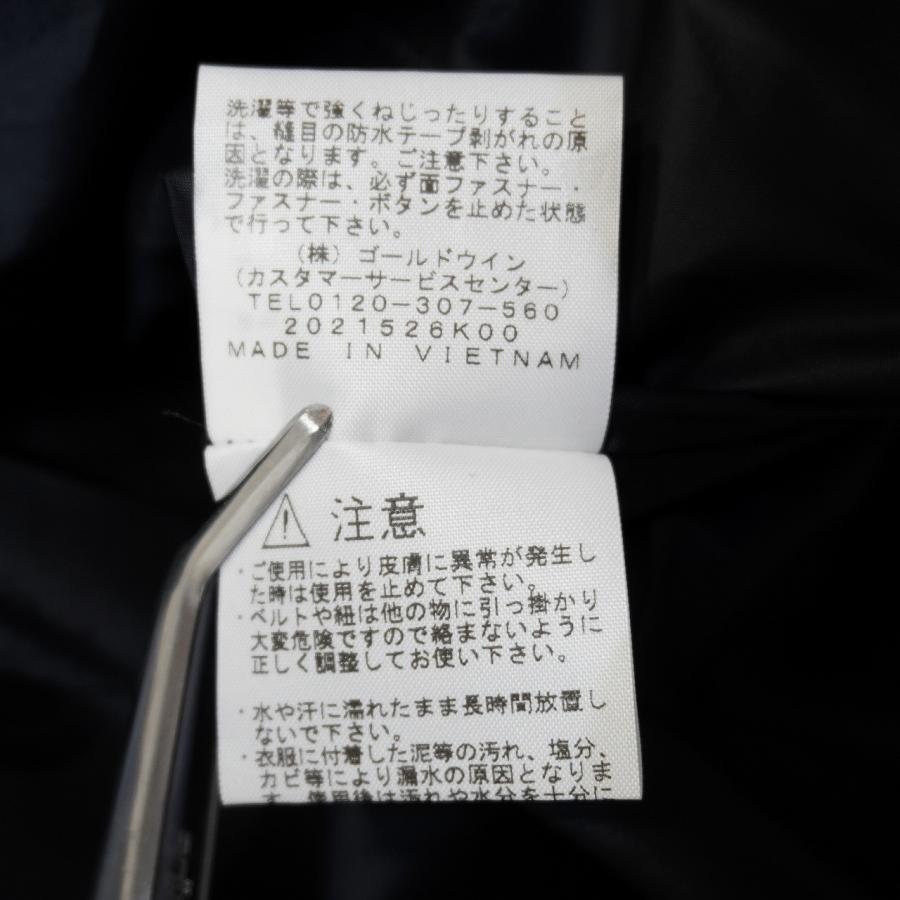 洗濯等で強くねじったりすること
は、縫目の防水テープ剥がれの原
因となります。ご注意下さい。
洗濯の際は、必ず面ファスナー・
ファスナー・ボタンを止めた状態
で行って下さい。
(株)ゴールドウイン
(カスタマーサービスセンター)
TEL0120-307-560
2021526K00
MADE IN VIETNAM
注意
・ご使用により皮膚に異常が発生し
た時は使用を止めて下さい。
・ベルトや紐は他の物に引っ掛かり
大変危険ですので絡まないように
正しく調整してお使い下さい。
・水や汗に濡れたまま長時間放置し
ないで下さい。
・衣服に付着した泥等の汚れ、塩分、
カビ等により漏水の原因となりま
す。使用後は汚れや水分を十分に